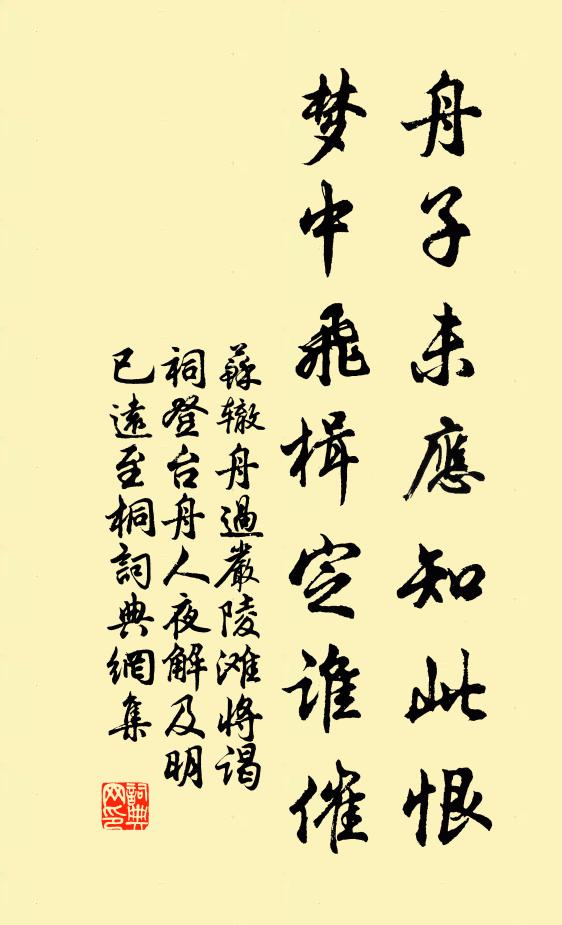 舟子未應知此恨
梦中飛楫定谁催
蘇辙舟過嚴陵滩将谒
祠登台舟人夜解及明
已遠至桐詞典網集
詞典
网印